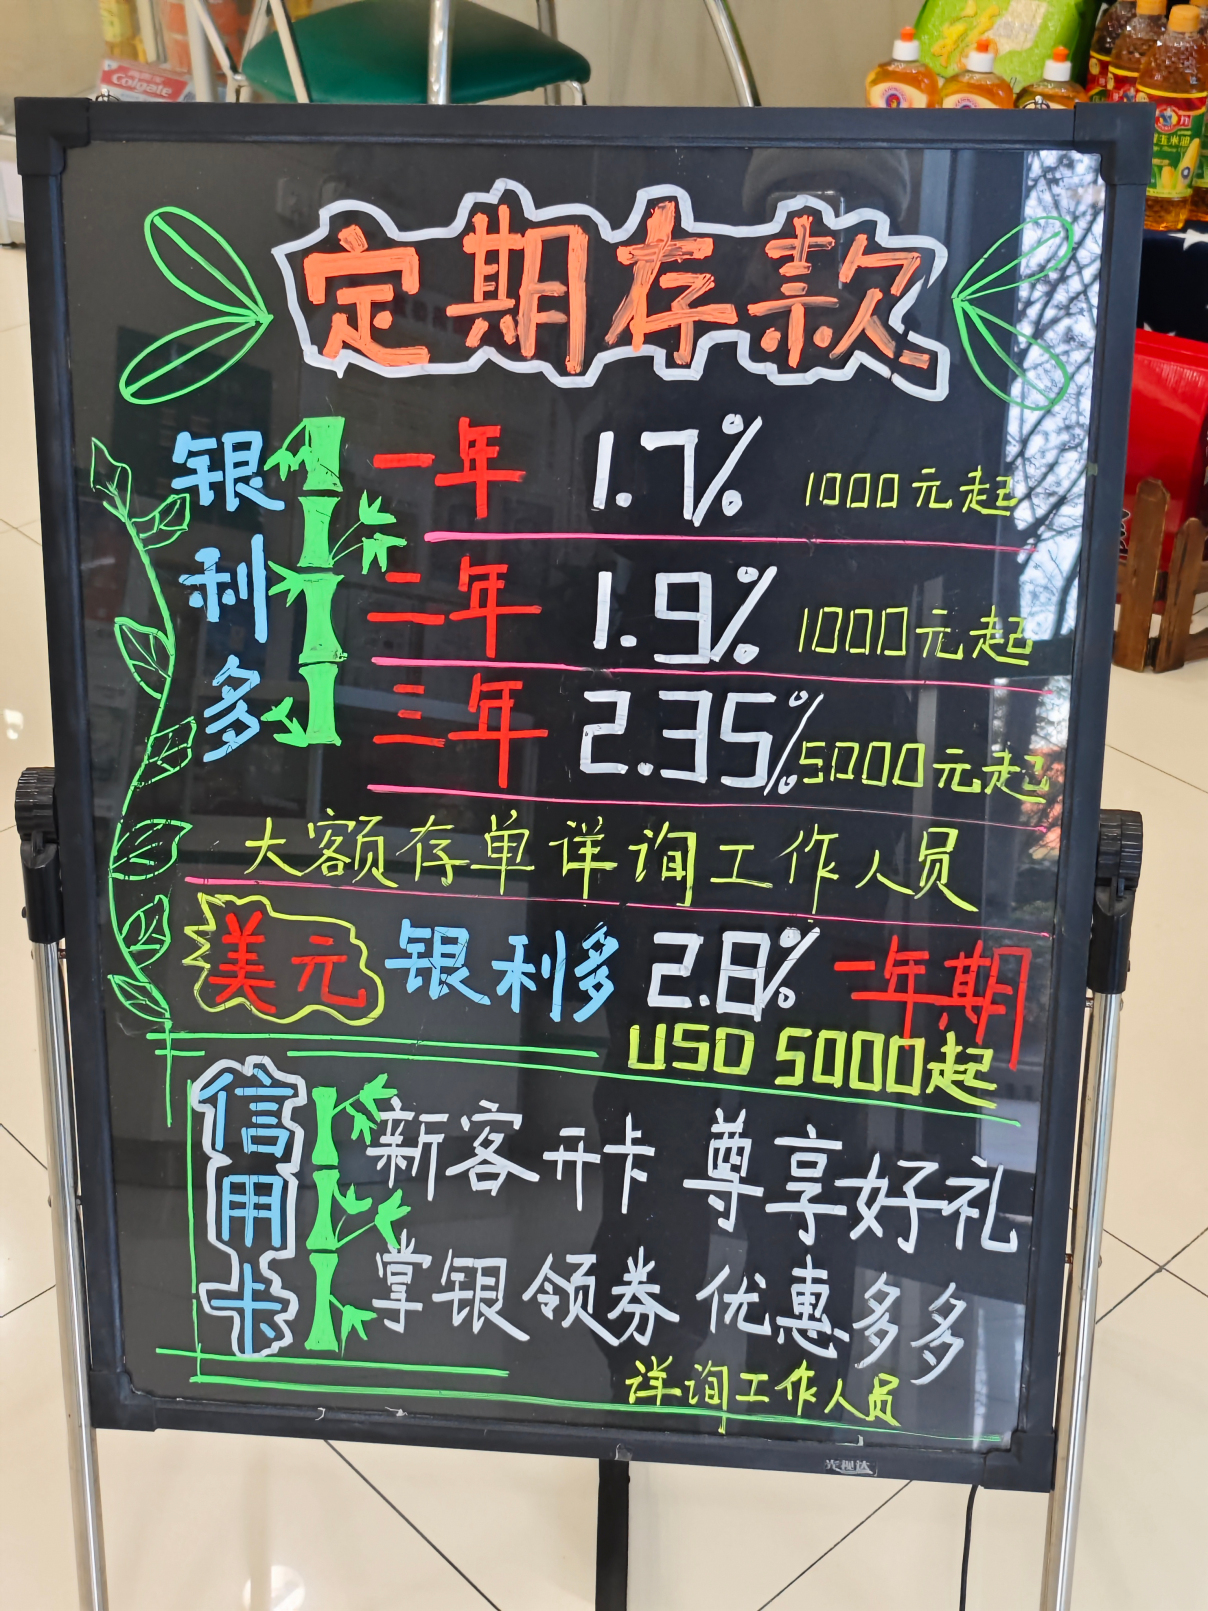 Colgate
玉米油
定期存款
银利多
一年 1.7% 1000元起
二年 1.9% 1000元起
三年 2.35% 5000元起
大额存单详询工作人员
美元 银利多 2.8% 一年期
USD 5000起
信用卡
新客开卡 尊享好礼
掌银领券 优惠多多
详询工作人员